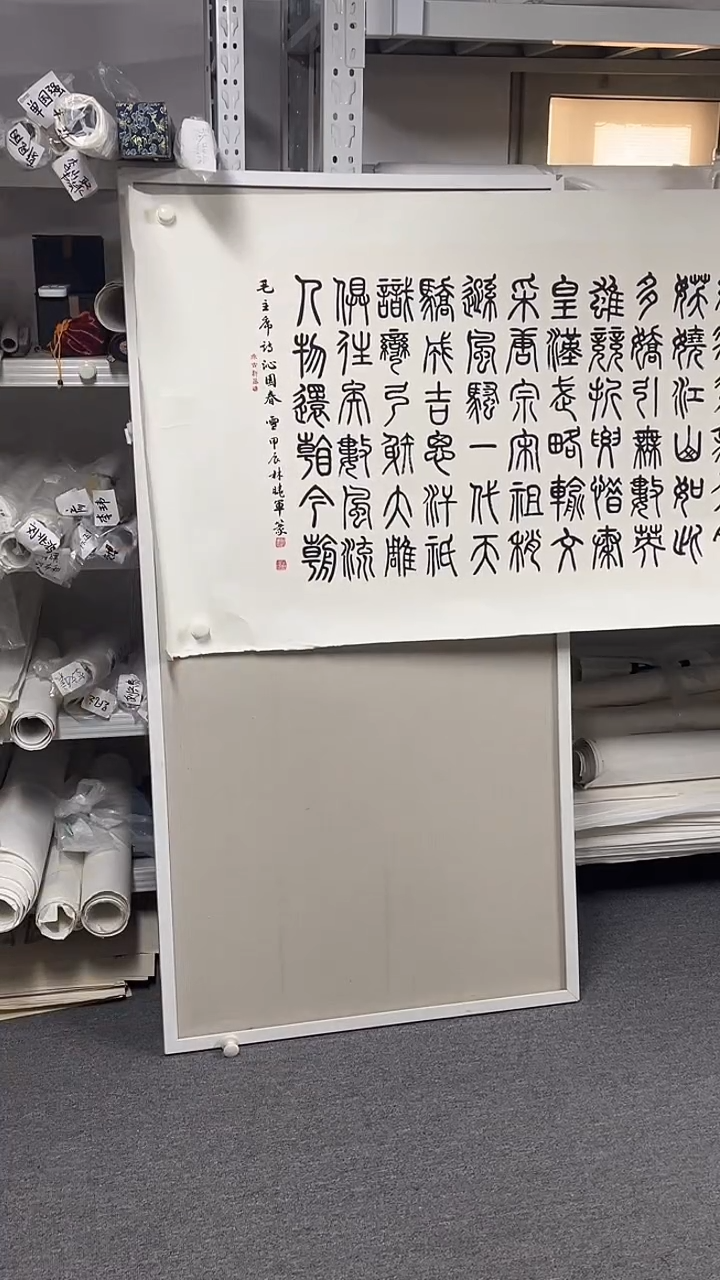 妖嬈江山如此
多嬌引無數英
雄競折腰惜秦
皇漢武略輸文
采唐宗宋祖稍
遜風騷一代天
驕成吉思汗祇
識彎弓射大雕
俱往矣數風流
人物還看今朝
毛主席诗沁园春 雪 甲辰林曉軍篆